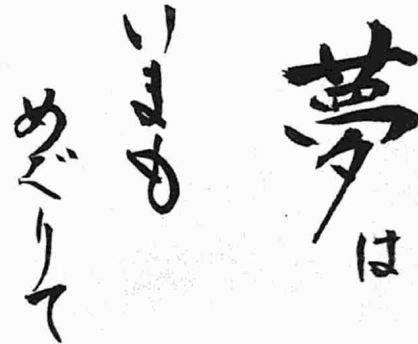 夢は
いまも
めぐりて